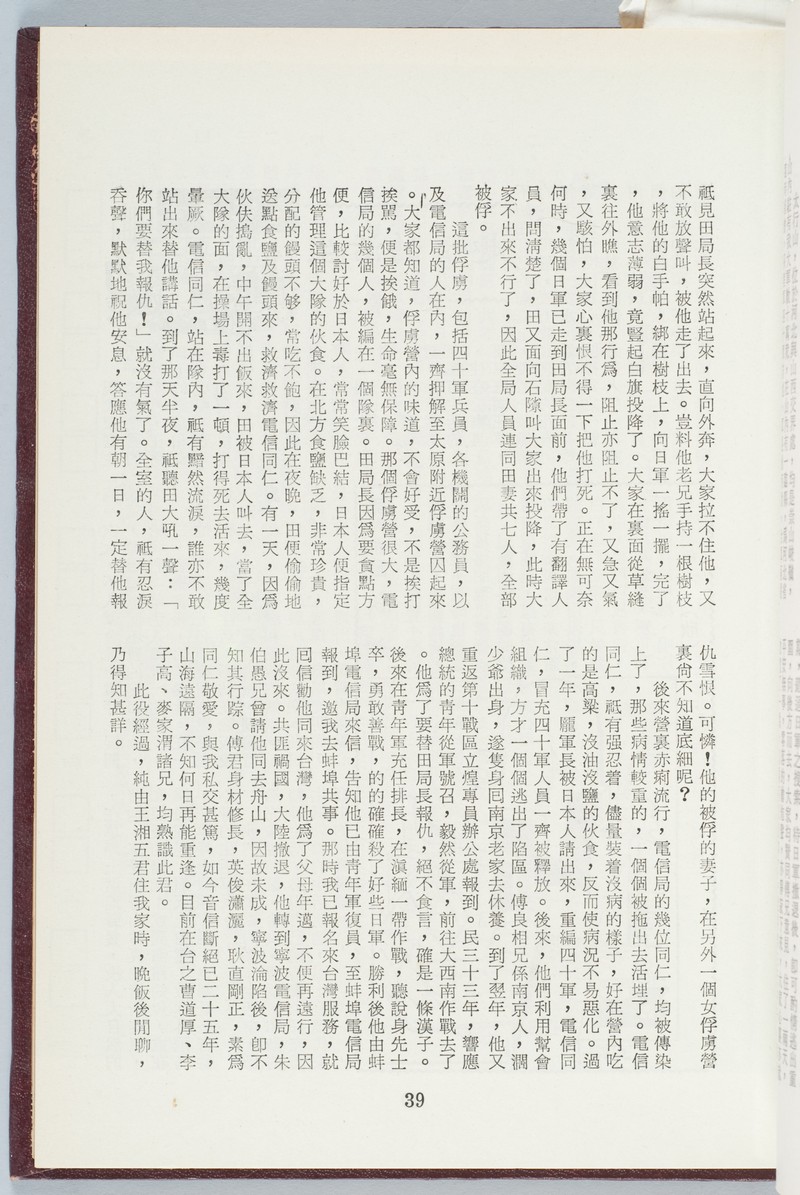 祗見田局長突然站起來，直向外奔，大家拉不住他，又
不敢放聲叫，被他走了出去。豈料他老兄手持一根樹枝
，將他的白手帕，綁在樹枝上，向日軍一搖一擺，完了
，他意志薄弱，竟豎起白旗投降了。大家在裏面從草縫
裏往外瞧，看到他那行為，阻止亦阻止不了，又急又氣
，又駭怕，大家心裏恨不得一下把他打死。正在無可奈
何時，幾個日軍已走到田局長面前，他們帶了有翻譯人
員，問清楚了，田又面向石隙叫大家出來投降，此時大
家不出來不行了，因此全局人員連同田妻共七人，全部
被俘。
這批俘虜，包括四十軍兵員，各機關的公務員，以
及電信局的人在內，一齊押解至太原附近俘虜營囚起來
。大家都知道，俘虜營內的味道，不會好受，不是挨打
挨罵，便是挨餓，生命毫無保障。那個俘虜營很大，電
信局的幾個人，被編在一個隊裏。田局長因爲要貪點方
便，比較討好於日本人，常常笑臉巴結，日本人便指定
他管理這個大隊的伙食。在北方食鹽缺乏，非常珍貴，
分配的饅頭不够，常吃不飽，因此在夜晚，田便偷偷地
送點食鹽及饅頭來，救濟救濟電信同仁。有一天，因爲
伙伕搗亂，中午開不出飯來，田被日本人叫去，當了全
大隊的面，在操場上毒打了一頓，打得死去活來，幾度
暈厥。電信同仁，站在隊內，祗有黯然流淚，誰亦不敢
站出來替他講話。到了那天半夜，祗聽田大吼一聲：「
你們要替我報仇！」就沒有氣了。全室的人，祗有忍淚
吞聲，默默地祝他安息，答應他有朝一日，一定替他報
仇雪恨。可憐！他的被俘的妻子，在另外一個女俘虜營
裏尙不知道底細呢？
後來營裏赤痢流行，電信局的幾位同仁，均被傳染
上了，那些病情較重的，一個個被拖出去活埋了。電信
同仁，祗有强忍着，儘量裝着沒病的樣子，好在營內吃
的是高粱，沒油沒鹽的伙食，反而使病況不易惡化。過
了一年，龎軍長被日本人請出來，重編四十軍，電信同
仁，冒充四十軍人員一齊被釋放。後來，他們利用幫會
組織，方才一個個逃出了陷區。傅良相兄係南京人，濶
少爺出身，遂隻身囘南京老家去休養。到了翌年，他又
重返第十戰區立煌專員辦公處報到。民三十三年，響應
總統的青年從軍號召，毅然從軍，前往大西南作戰去了
。他爲了要替田局長報仇，絕不食言，確是一條漢子。
後來在青年軍充任排長，在滇緬一帶作戰，聽說身先士
卒，勇敢善戰，的的確確殺了好些日軍。勝利後他由蚌
埠電信局來信，告知他已由青年軍復員，至蚌埠電信局
報到，邀我去蚌埠共事。那時我已報名來台灣服務，就
囘信勸他同來台灣，他爲了父母年邁，不便再遠行，因
此沒來。共匪禍國，大陸撤退，他轉到寧波電信局，朱
伯愚兄曾請他同去舟山，因故未成，寧波淪陷後，卽不
知其行踪。傅君身材修長，英俊瀟灑，耿直剛正，素爲
同仁敬愛，與我私交甚篤，如今音信斷絕已二十五年，
山海遠隔，不知何日再能重逢。目前在台之曹道厚、李
子高、麥家渭諸兄，均熟識此君。
此役經過，純由王湘五君住我家時，晚飯後閒聊，
乃得知甚詳。
39